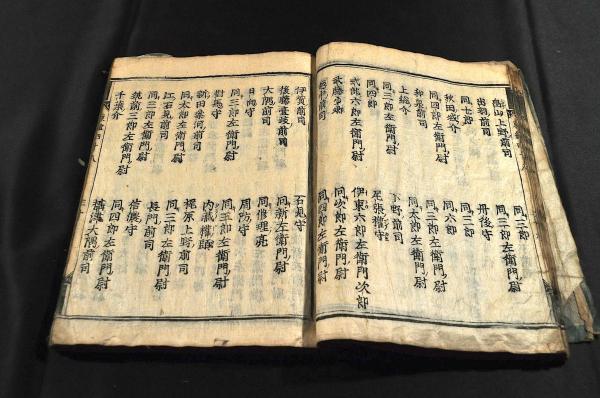 畠山上野前司 同三郎
出羽前司 同三郎左衛門尉
同七郎 丹後守
秋田城介 同三郎
同四郎左衛門尉 同六郎
和泉前司 同三郎左衛門尉
上総介 同太郎左衛門尉
同三郎左衛門尉 下野前司
同四郎 尾張権守
六郎左衛門尉 伊東六郎左衛門次郎
武藤 同次郎左衛門尉
越中前司 同四郎左衛門尉
伊賀前司 石見守
後藤壹岐前司 同新左衛門尉
大隅前司 同修理亮
日向守 周防守
同三郎左衛門尉 同五郎左衛門尉
對馬守 内蔵權頭
新田参河前司 梶原上野前司
同太郎左衛門尉 同三郎左衛門尉
江石見前司 長門前司
同三郎左衛門尉 信濃守
筑前三郎左衛門尉 同四郎左衛門尉
千葉介 大隅前司